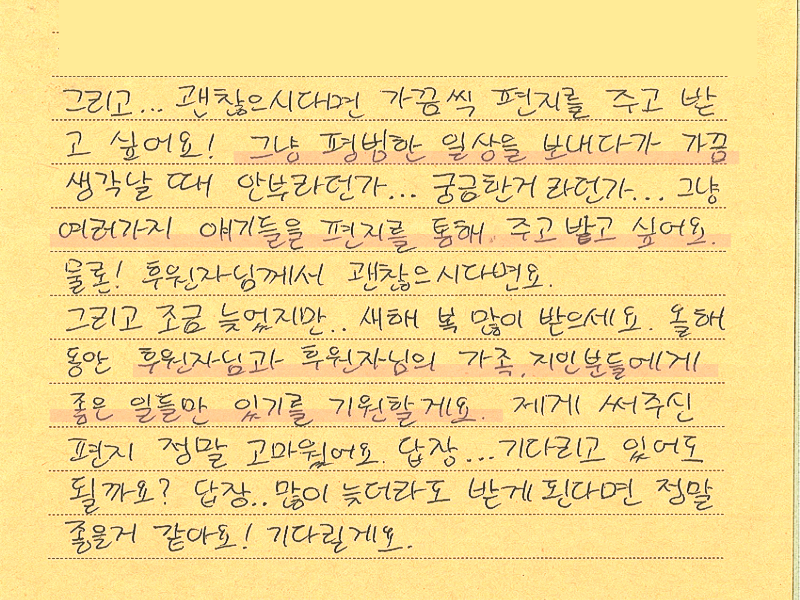 그리고... 괜찮으시다면 가끔씩 편지를 주고 받
고 싶어요! 그냥 평범한 일상을 보내다가 가끔
생각날 때 안부라던가... 궁금한거라던가... 그냥
여러가지 얘기들을 편지를 통해 주고 받고 싶어요.
물론! 후원자님께서 괜찮으시다면요.
그리고 조금 늦었지만.. 새해 복 많이 받으세요. 올해
동안 후원자님과 후원자님의 가족, 지인분들에게
좋은 일들만 있기를 기원할게요. 제게 써주신
편지 정말 고마웠어요. 답장... 기다리고 있어도
될까요? 답장.. 많이 늦더라도 받게 된다면 정말
좋을거 같아요! 기다릴게요.